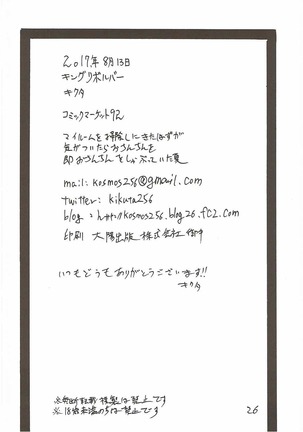 2017年8月13日
キングリボルバー
キクタ
コミックマーケット92
マイルームを掃除しにきたはずが
気がついたらおちんちんを
即おちんちんをしゃぶっていた夏
mail: kosmos256@gmail.com
twitter: kikuta256
blog : http://kosmos256.blog26.fc2.com
印刷 太陽出版 株式会社 御中
いつもどうもありがとうございます!!
キクタ
※無断転載 複製は禁止です
※18歳未満の方は禁止です
26